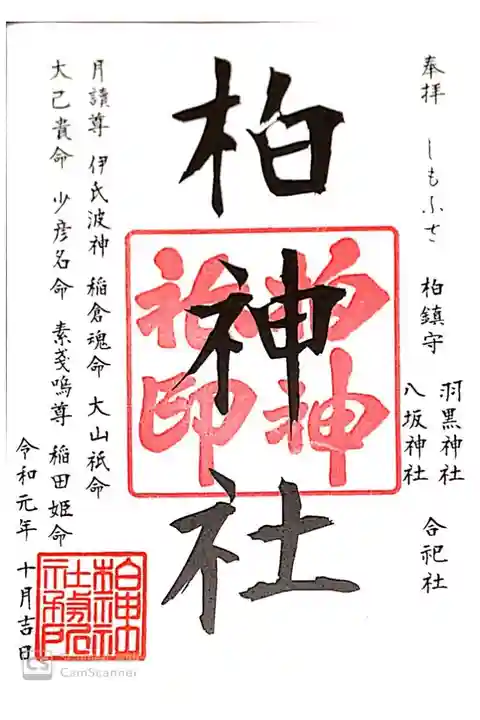 奉拝 しもふさ 柏鎮守 羽黒神社 八坂神社 合祀社
柏神社
柏神社印
月讀尊 伊氏波神 稲倉魂命 大山祇命
大己貴命 少彦名命 素戔嗚尊 稲田姫命
令和元年 十月吉日
柏神社社務所之印
CS CamScanner